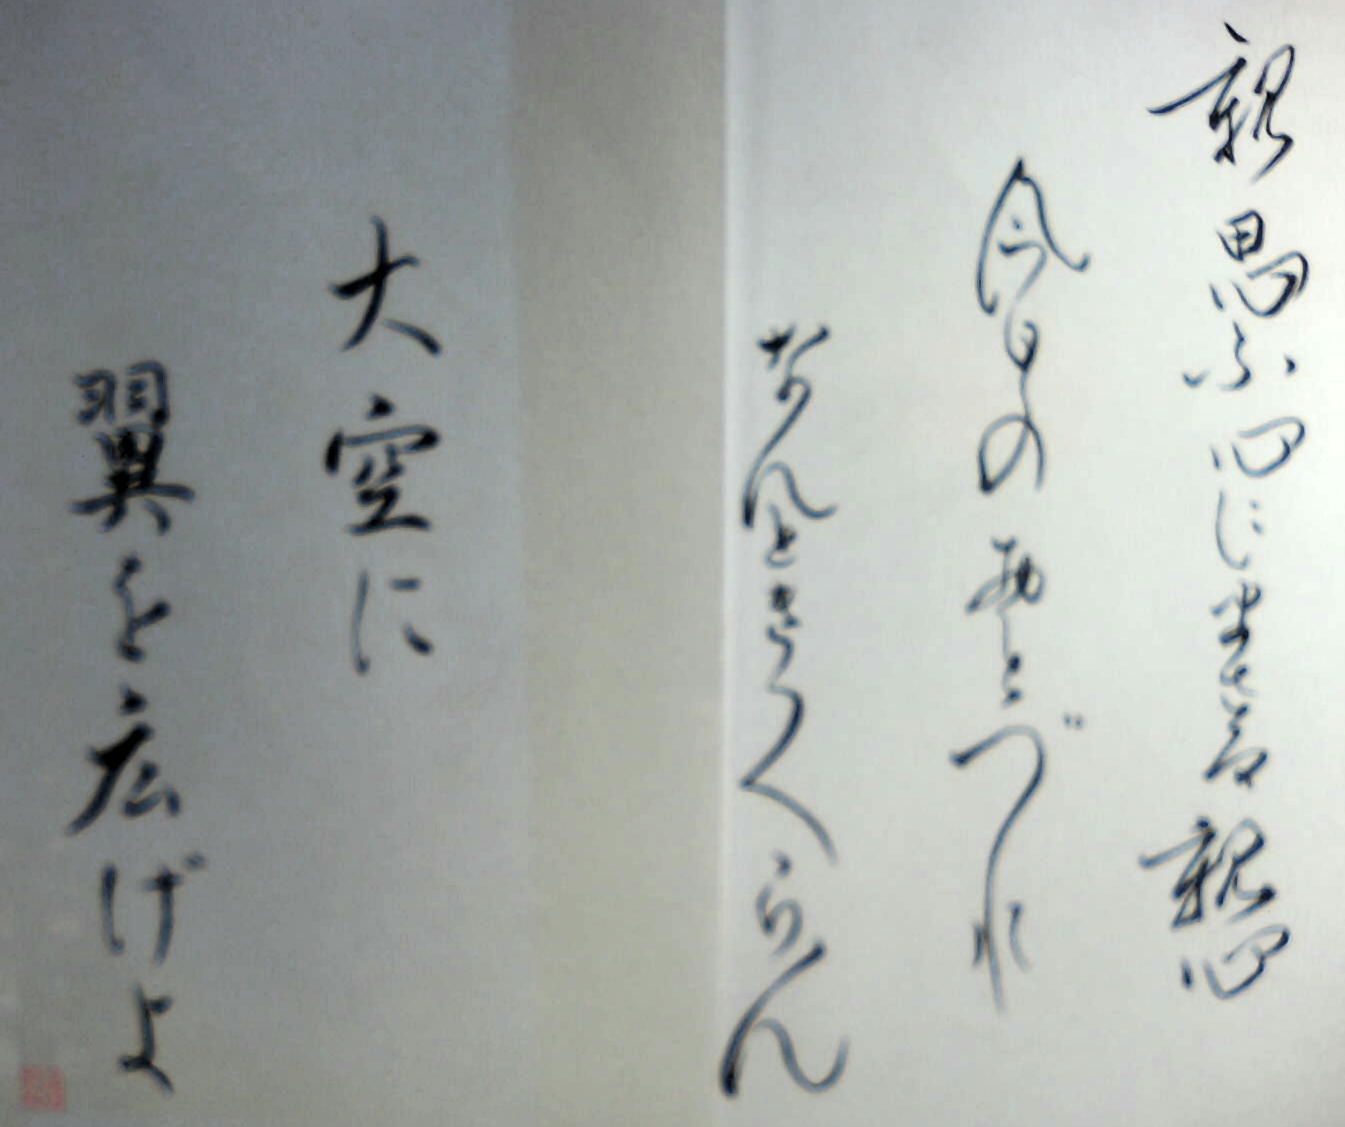 親思ふ心にまさる親心
今日のおとづれ
なんときくらん
大空に
翼を広げよ